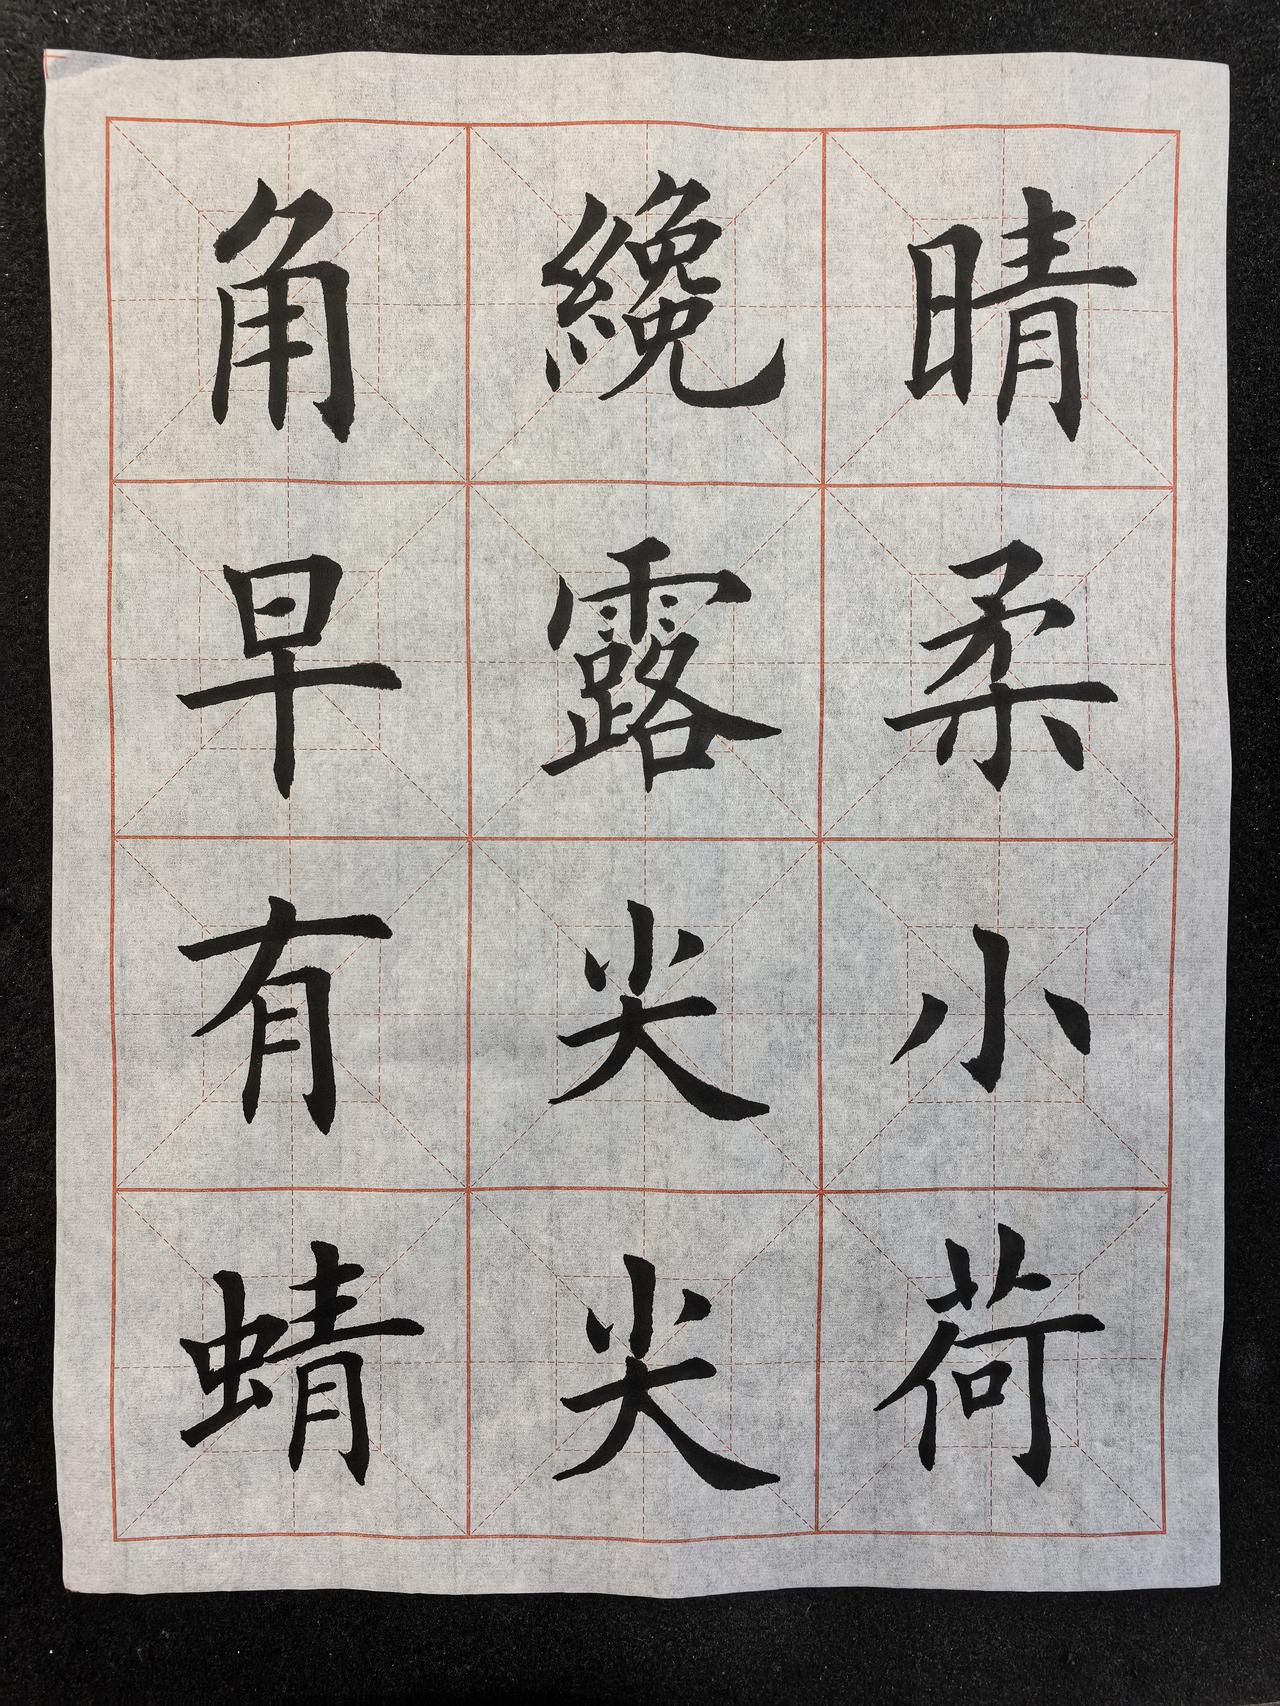 晴柔小荷
纔露尖尖
角早有蜻